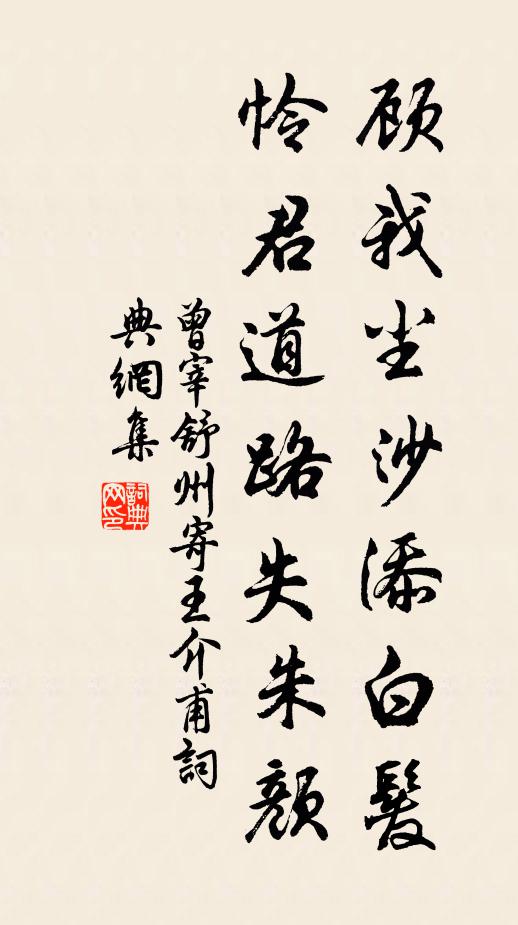 顾我尘沙添白髮
怜君道路失朱颜
曾宰舒州寄王介甫詞
典網集
詞典
网印